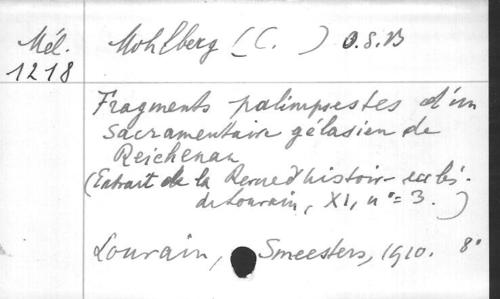 Mél. 1218
Mohlberg (C. ) O.S.B
Fragments palimpsestes d'un
Sacramentaire gélasien de
Reichenau
(Extrait de la Revue d'histoire ecclés.
de Louvain, XI, n° = 3. )
Louvain, Smeesters, 1910. 8°